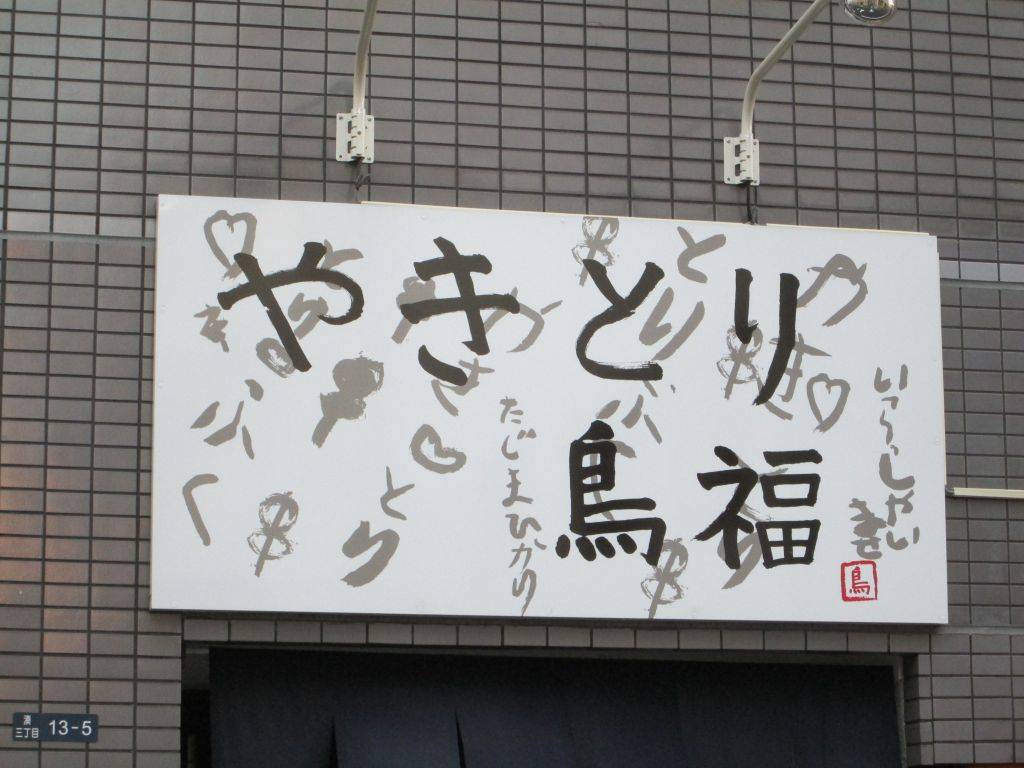 やきとり
鳥福
たじまひかり
いらっしゃい
ませ
鳥
やきとり
とり
ふく
とり
湊
三丁目 13-5